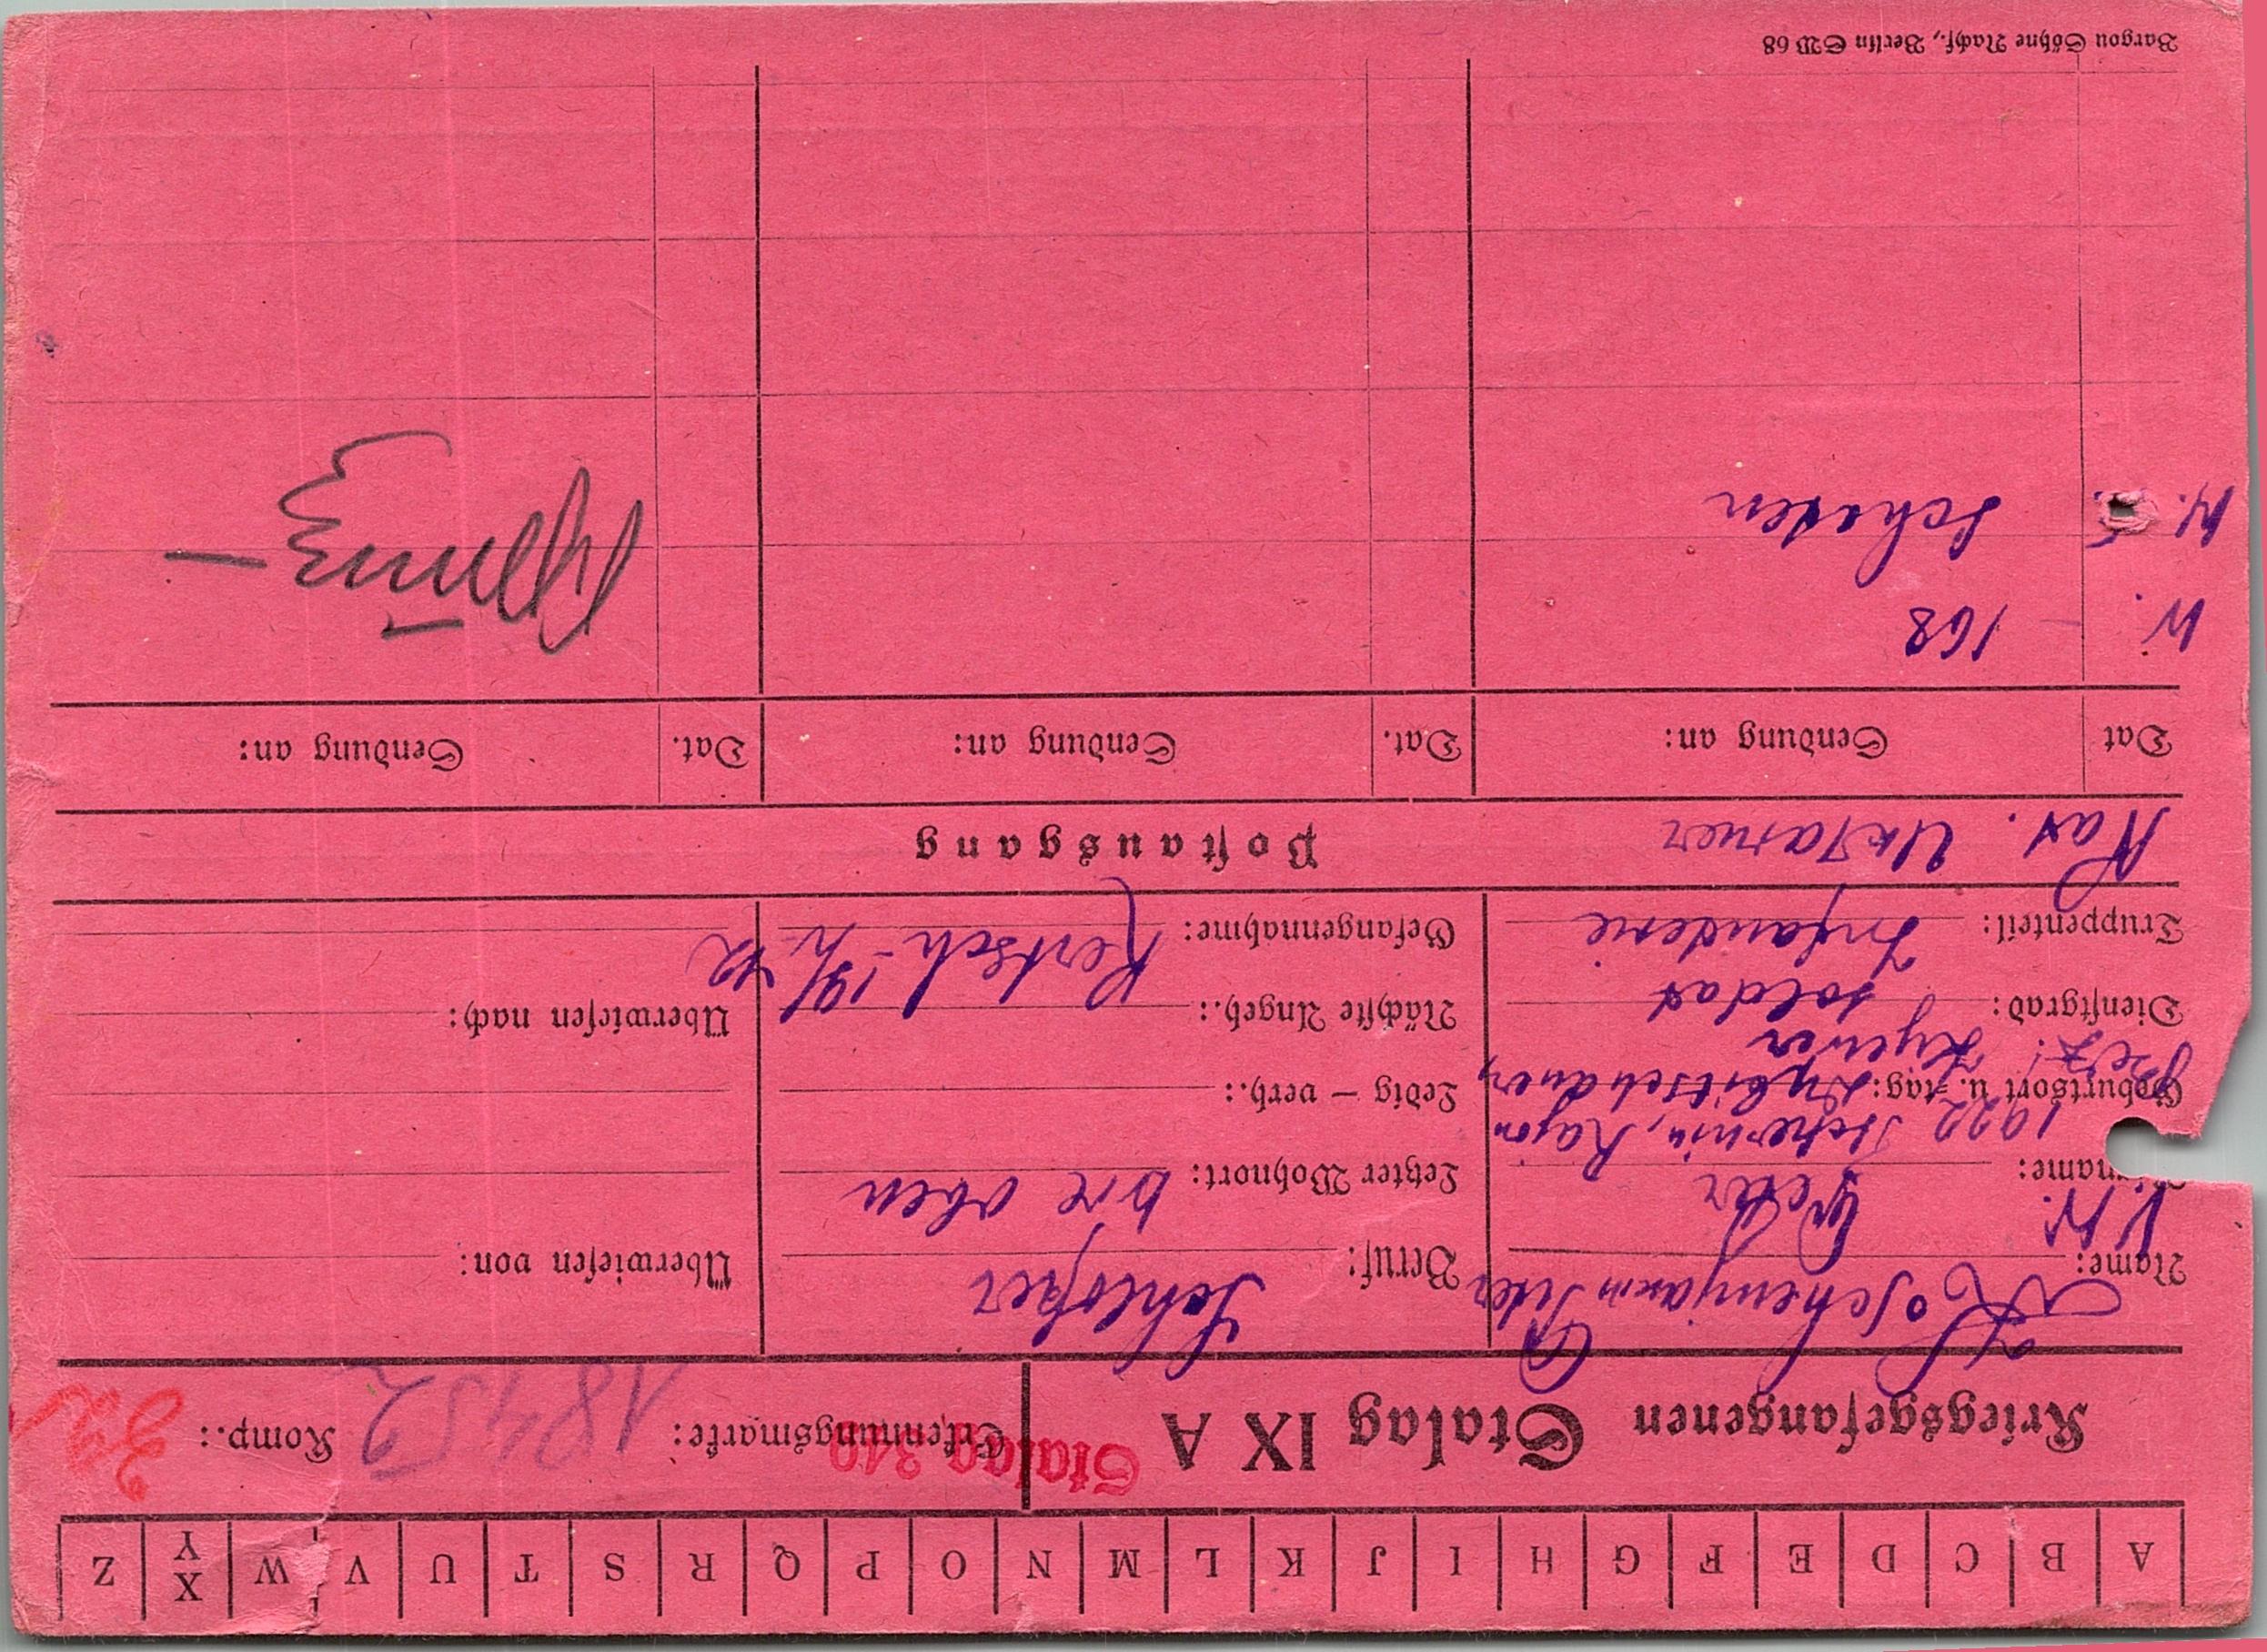 A B C D E F G H I J K L M N O P Q R S T U V W X Y Z
Kriegsgefangenen Stalag IX A
Stalag 340
Erkennungsmarke: 18452 Komp.: 32
Name: Koschemjaxin Peter
V. N. Peter
name:
1922
Rajon
Geburtsort u. -tag:
Bez.: Kyewer
Dienstgrad: soldat
Truppenteil: Infanterie
Nat. Ukrainer
Beruf: Schlosser
Letzter Wohnort: wie oben
Ledig – verh.:
Nächste Angeh.:
Gefangennahme: Kertsch - 19/V. 42
Überwiesen von:
Überwiesen nach:
Postausgang
Dat Sendung an: Dat. Sendung an: Dat. Sendung an:
168
Bargou Söhne Nachf., Berlin SW 68